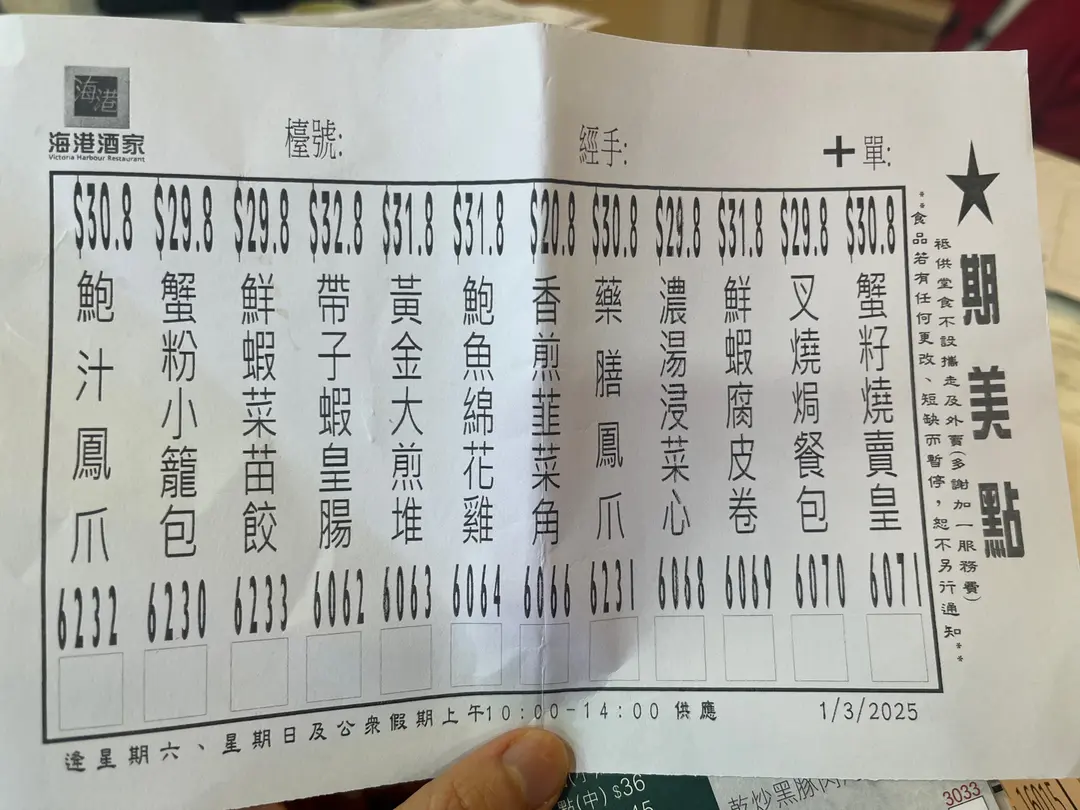 海港
海港酒家
Victoria Harbour Restaurant
檯號:
經手:
+單:
★期美點
祇供堂食不設攜走及外賣(多謝加一服務費)
**食品若有任何更改、短缺而暫停,恕不另行通知**
$30.8 蟹籽燒賣皇 6071
$29.8 叉燒焗餐包 6070
$31.8 鮮蝦腐皮卷 6069
$29.8 濃湯浸菜心 6068
$30.8 藥膳鳳爪 6231
$20.8 香煎韮菜角 6066
$31.8 鮑魚綿花雞 6064
$31.8 黃金大煎堆 6063
$32.8 帶子蝦皇腸 6062
$29.8 鮮蝦菜苗餃 6233
$29.8 蟹粉小籠包 6230
$30.8 鮑汁鳳爪 6232
逢星期六、星期日及公衆假期上午10:00-14:00 供應
1/3/2025
點(中) $36
乾炒黑豚肉
3033